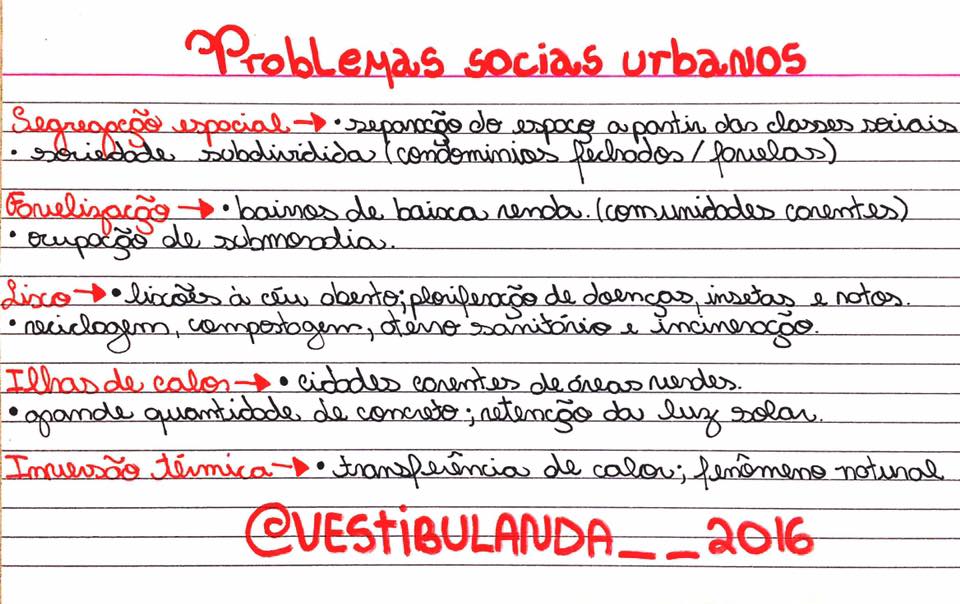 Problemas socias urbanos
Segregação espacial → • separação do espaço a partir das classes sociais
• sociedade subdividida (condominios fechados / favelas)
Favelização → • bairros de baixa renda. (comunidades carentes)
• ocupação de submoradia.
Lixo → • lixões à céu aberto; ploriferação de doenças, insetas e ratos.
• reciclagem, compostagem, aterro sanitário e incineração.
Ilhas de calor → • cidades carentes de áreas verdes.
• grande quantidade de concreto; retenção da luz solar.
Inversão térmica → • transferência de calor; fenômeno natural
@VESTIBULANDA__2016